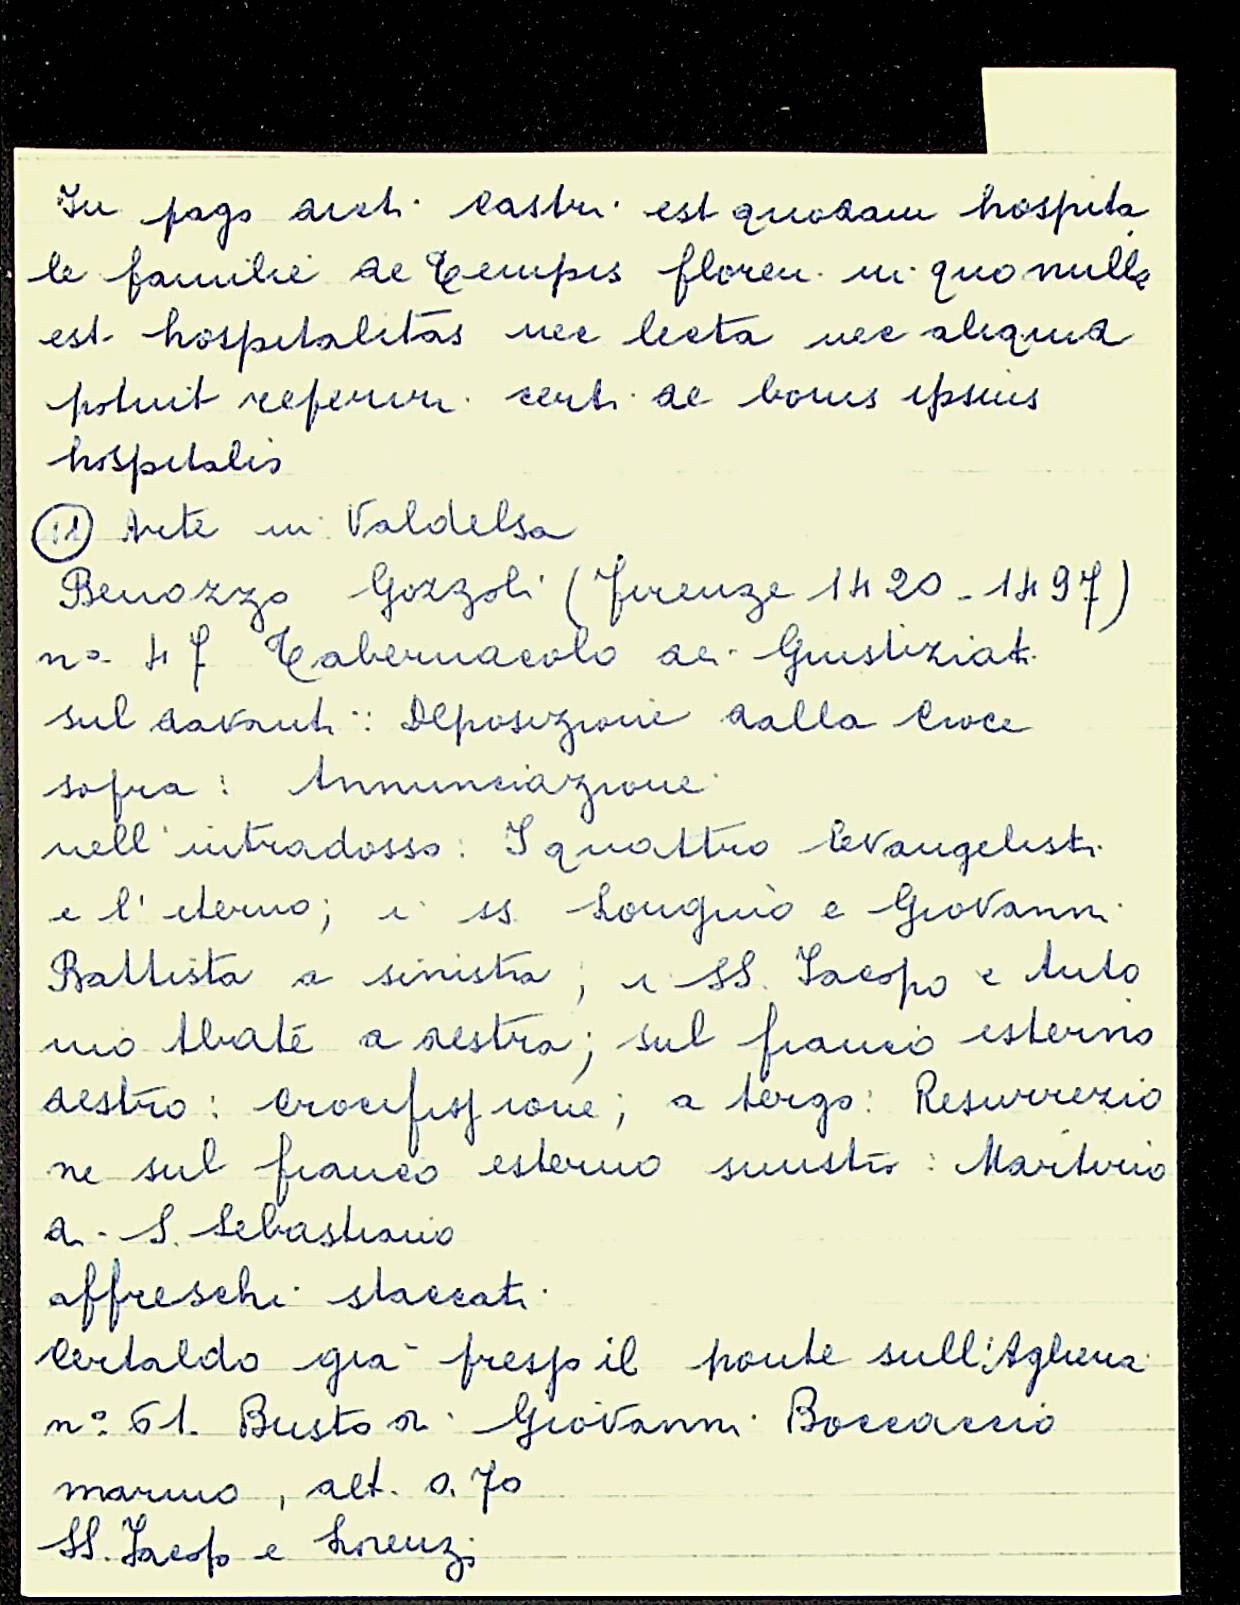 In pago dicti castri est quodam hospita
le familie de Tempis floren. in quo nulla
est hospitalitas nec lecta nec aliquid
potuit referiri certi de bonis ipsius
hospitalis
(11) Arte in Valdelsa
Benozzo Gozzoli (Firenze 1420 - 1497)
n° 47 Tabernacolo dei Giustiziati
sul davanti: Deposizione dalla Croce
sopra: Annunciazione
nell'intradosso: I quattro Evangelisti
e l'eterno; i ss. Longino e Giovanni
Battista a sinistra; i SS. Jacopo e Anto
nio Abate a destra; sul fianco esterno
destro: Crocifissione; a tergo: Resurrezio
ne sul fianco esterno sinistro: Martirio
di S. Sebastiano
affreschi staccati
Certaldo già presso il ponte sull'Agliena
n° 61. Busto di Giovanni Boccaccio
marmo, alt. 0.70
SS. Jacopo e Lorenzo